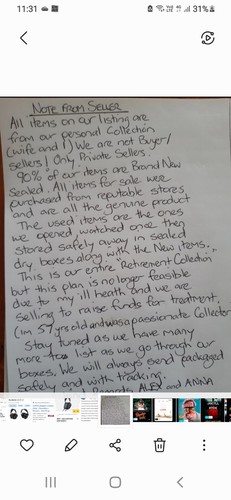 11:31
31%
NOTE FROM SELLER
All items on our listing are
from our personal Collection
(wife and I) We are not Buyer/
sellers! Only Private Sellers.
90% of our items are Brand New
Sealed. All items for sale were
purchased from reputable stores
and are all the genuine product
The used items are the ones
we opened, watched once then
stored safely away in sealed
dry boxes along with the New items.
This is our entire "Retirement Collection
but this plan is no longer feasible
due to my ill heath and we are
selling to raise funds for treatment,
(im 57 yrs old and was a passionate Collector
Stay tuned as we have many
more to list as we go through our
boxes. We will always send packaged
safely and with tracking.
Regards ALEX and ANNA